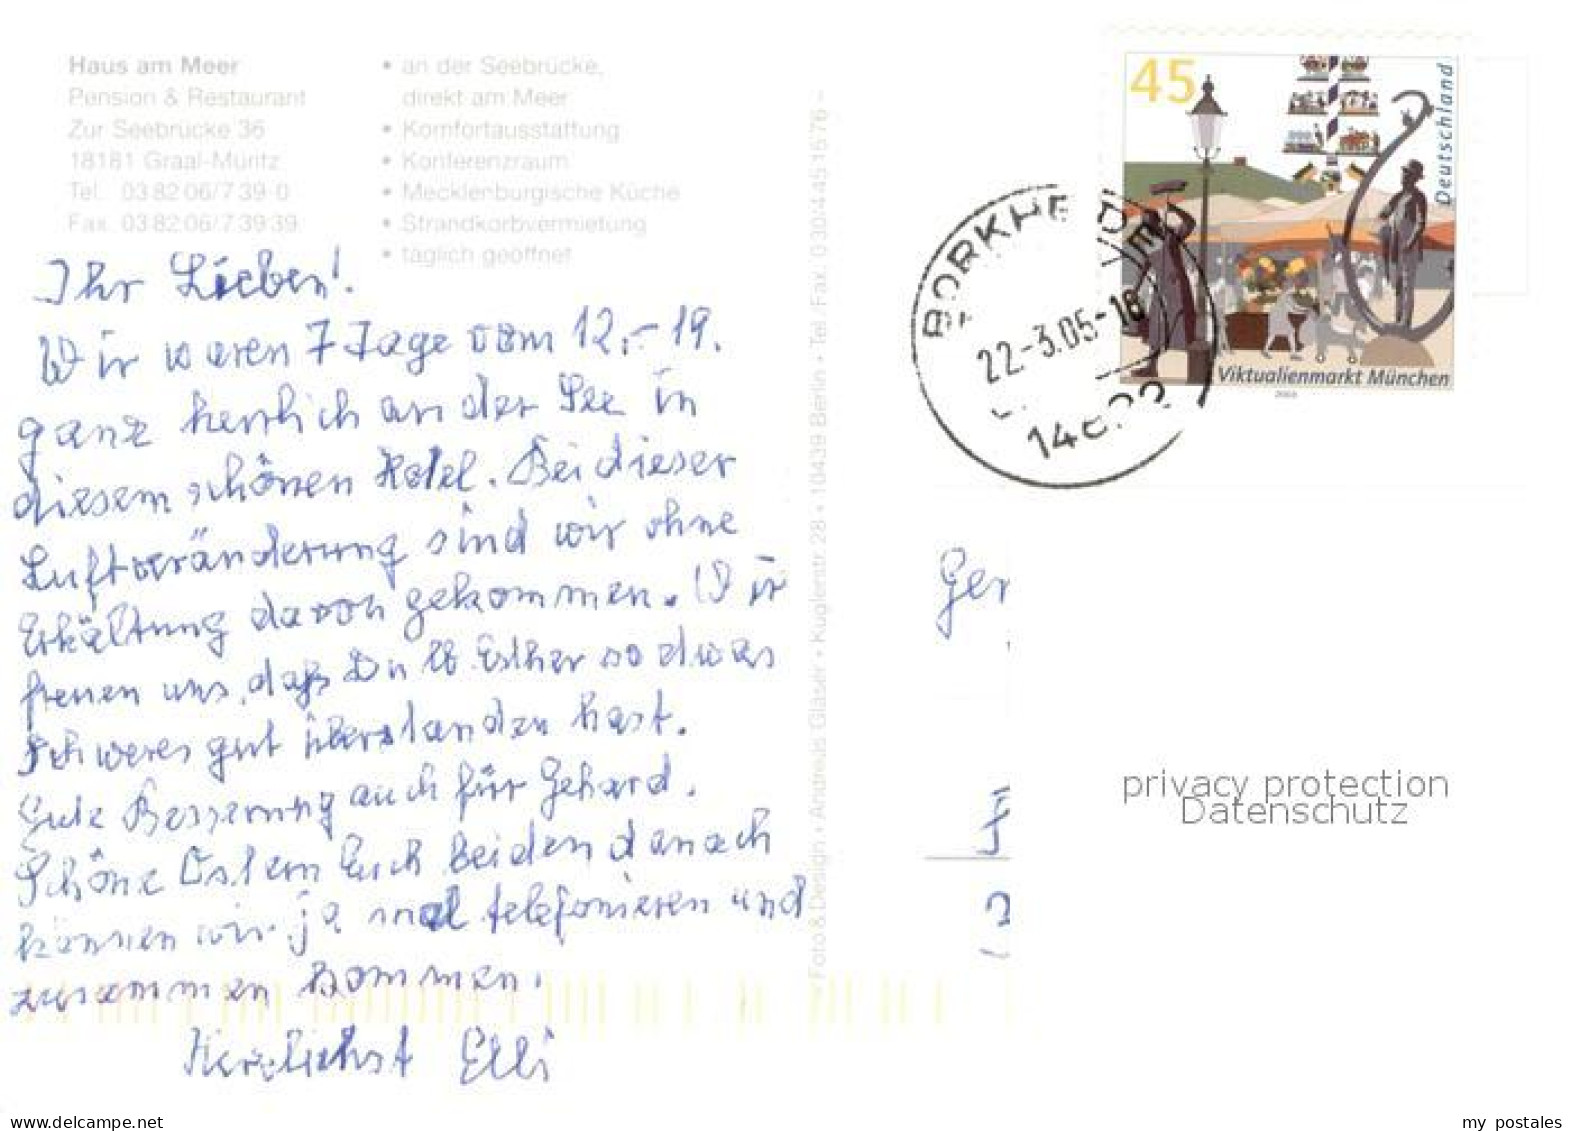 Haus am Meer
Pension & Restaurant
Zur Seebrücke 36
18181 Graal-Müritz
Tel. 03 82 06/7 39-0
Fax 03 82 06/7 39 39
• an der Seebrücke,
direkt am Meer
• Komfortausstattung
• Konferenzraum
• Mecklenburgische Küche
• Strandkorbvermietung
• täglich geöffnet
Ihr Lieben!
Wir waren 7 Tage vom 12.-19.
ganz herrlich an der See in
diesem schönen Hotel. Bei dieser
Luftveränderung sind wir ohne
Erkältung davon gekommen. Wir
freuen uns, daß Du lb. Esther so etwas
schweres gut überstanden hast.
Gute Besserung auch für Gehard.
Schöne Ostern Euch beiden danach
können wir ja mal telefonieren und
zusammen kommen.
Herzlichst Elli
Foto & Design • Andreas Gläser • Kuglerstr. 28 • 10439 Berlin • Tel./Fax: 0 30/4 45 16 76
45
Deutschland
Viktualienmarkt München
BORKHEIDE
22-3.05-18
Ger
privacy protection
Datenschutz
www.delcampe.net
my_postales